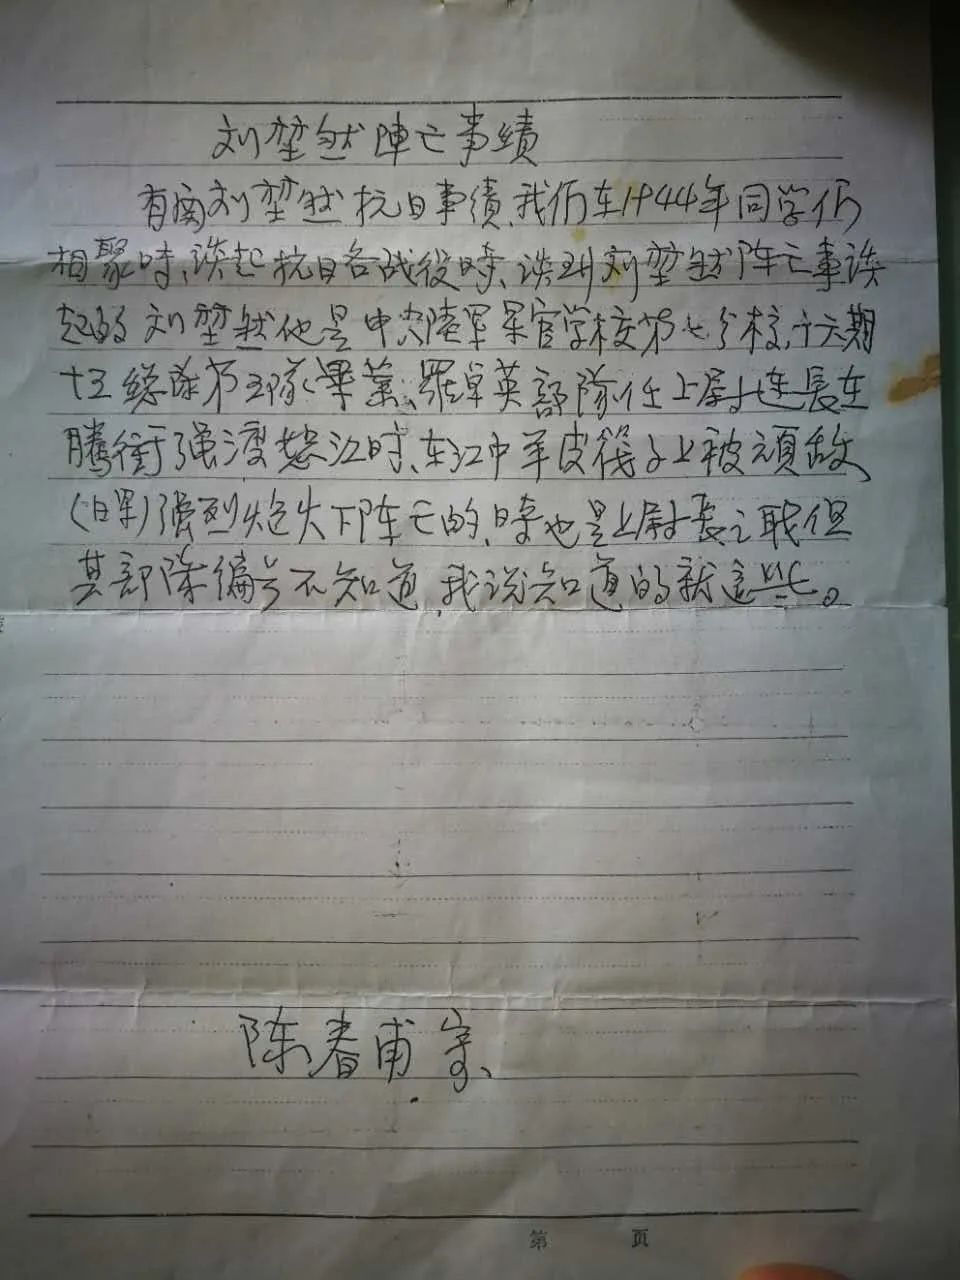 刘堃然陣亡事绩
有関刘堃然抗日事绩、我们在1944年同学们
相聚時、谈起抗日各战役時、谈到刘堃然阵亡事谈
起的刘堃然他是中央陸军军官学校第七分校、十六期
十三總隊第三隊、畢業、羅卓英部隊任上尉連長在
腾衝强渡怒江时、在江中羊皮筏子上被頑敌、
(日军)强烈炮火下阵亡的、時也是上尉長之职但
其部隊编号不知道、我说知道的就这些。
陈春甫寄、
第 页